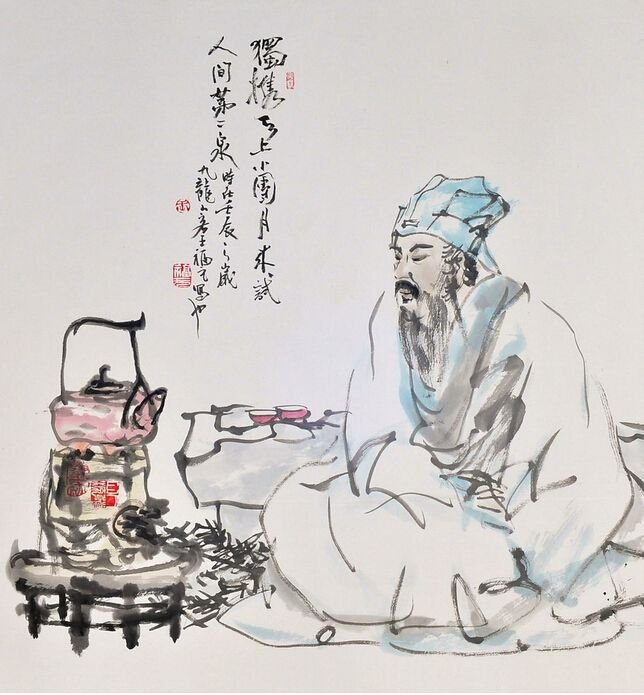 獨攜天上小團月來試
人间第二泉 時在壬辰之歲
九龍 福元寫